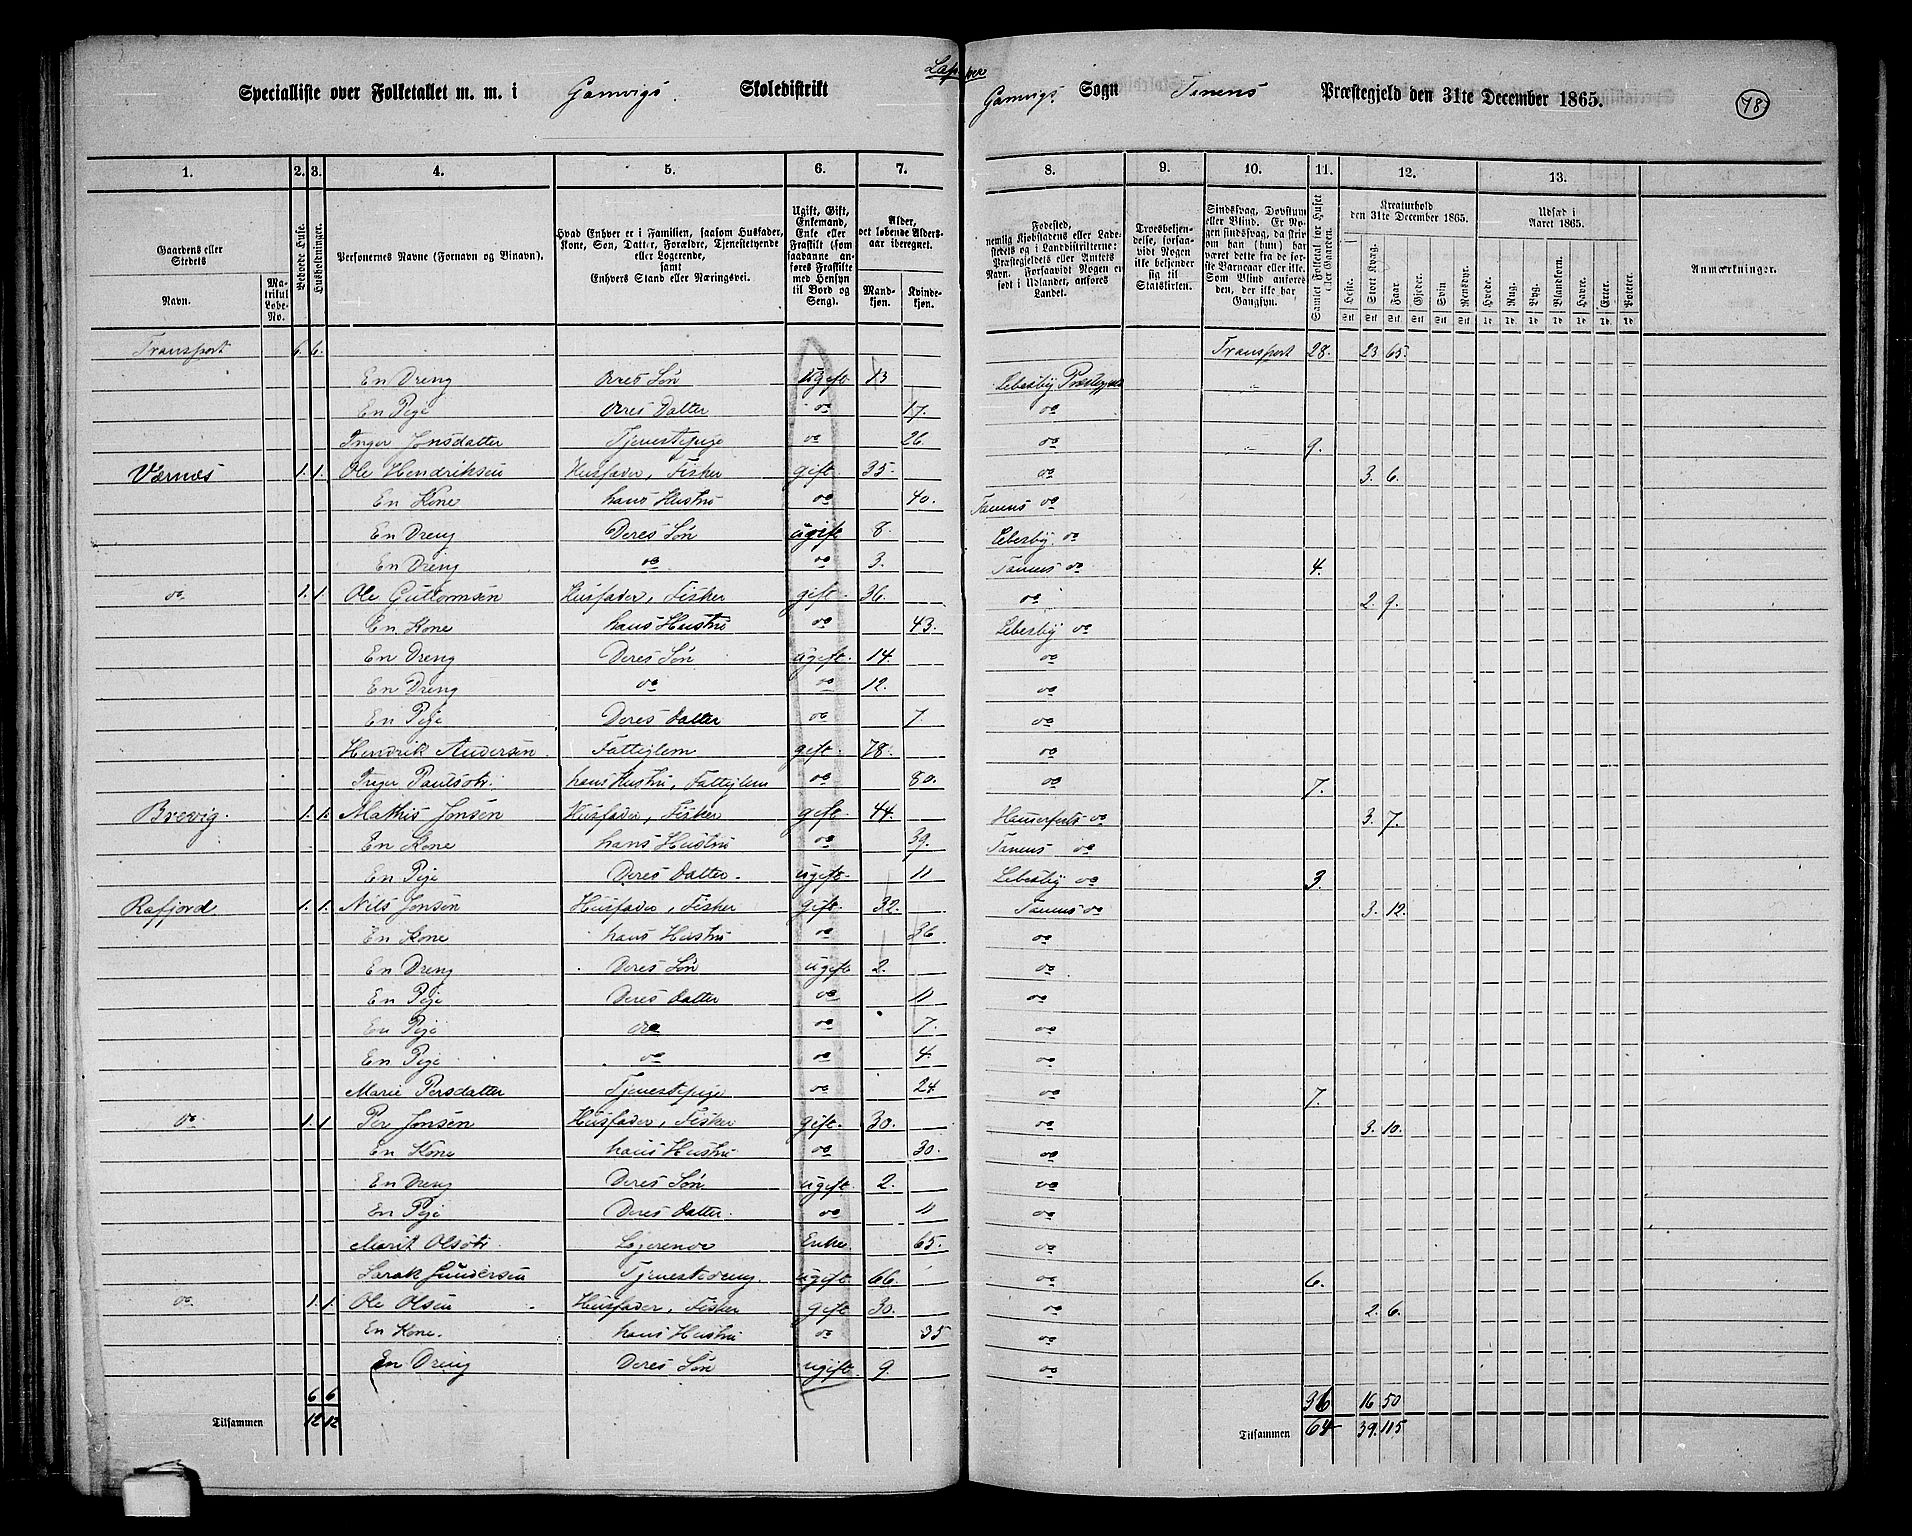 Lapper
Specialliste over Folketallet m. m. i Gamvigs Skoledistrikt Gamvigs Sogn Tanens Præstegjeld den 31te December 1865. 78
1. 2. 3. 4. 5. 6. 7. 8. 9. 10. 11. 12. 13.
Gaardens eller Stedets Navn. Matrikul Løbe-No. Beboede Huse. Husholdninger. Personernes Navne (Fornavn og Binavn). Hvad Enhver er i Familien, saasom Husfader, Kone, Søn, Datter, Forældre, Tjenestetyende eller Logerende, samt Enhvers Stand eller Næringsvei. Ugift, Gift, Enkemand, Enke eller Fraskilt (som saadanne anføres Fraskilte med Hensyn til Bord og Seng). Alder, det løbende Aldersaar iberegnet. Mandkjøn. Kvindekjøn.
Fødested, nemlig Kjøbstadens eller Ladestedets og i Landdistrikterne: Præstegjeldets eller Amtets Navn. Forsaavidt Nogen er født i Udlandet, anføres Landet. Troesbekjendelse, forsaavidt Nogen ikke bekjender sig til Statskirken. Sindssvag, Døvstum eller Blind. Er Nogen sindssvag, da skrives om han (hun) har været dette fra de første Barneaar eller ikke. Som Blind anføres den, der ikke har Gangsyn. Samlet Folketal for Huset eller Gaarden. Kreaturhold den 31te December 1865. Heste. Stort Kvæg. Faar. Gjeder. Svin Rensdyr. Udsæd i Aaret 1865. Hvede. Rug. Byg. Blandkorn. Havre. Erter. Poteter. Anmærkninger.
Transport 6. 6. Transport 28. 23 65.
En Dreng Deres Søn ugift 13 Lebesby Præstegjeld
En Pige Deres Datter do 17. do
Inger Jonsdatter Tjenestepige do 26 do 9.
Værnæs 1. 1. Ole Hendriksen Husfader, Fisker gift. 35. do 3. 6.
En Kone hans Hustru do 40. Tanens do
En Dreng Deres Søn ugift 8. Lebesby. do
En Dreng do do 3. Tanens do 4.
do 1. 1. Ole Guttormsen Husfader, Fisker gift. 36. do 2. 9.
En Kone hans Hustru do 43. Lebesby do
En Dreng Deres Søn ugift. 14. do
En Dreng do do 12. do
En Pige Deres Datter do 7. do
Hendrik Andersen Fattiglem gift. 78. do
Inger Paulsdtr. hans Hustru, Fattiglem do 80. do 7.
Brevig. 1. 1. Mathis Jonsen Husfader, Fisker gift. 44. Hammerfests do 3. 7.
En Kone hans Hustru do 39. Tanens do
En Pige Deres Datter. ugift. 11 Lebesby do 3.
Rafjord 1. 1. Nils Jonsen Husfader, Fisker gift. 32. Tanens do 3. 12.
En Kone hans Hustru do 36 do
En Dreng Deres Søn ugift 2. do
En Pige Deres Datter do 11 do
En Pige do do 7. do
En Pige do do 4. do
Marie Persdatter Tjenestepige do 24 do 7.
do 1. 1 Per Jonsen Husfader, Fisker gift. 30. do 3. 10.
En Kone hans Hustru do 30. do
En Dreng Deres Søn ugift. 2. do
En Pige Deres Datter. do 11 do
Marit Olsdtr. Logerende Enke. 65. do
Tjenestedreng. ugift. 66. do 6.
do 1. 1. Ole Olsen Husfader, Fisker gift 30. do 2. 6.
En Kone. hans Hustru do 35 do
En Dreng Deres Søn ugift. 9. do
6 6 36 16 50
Tilsammen 12 12 Tilsammen 64 39. 115